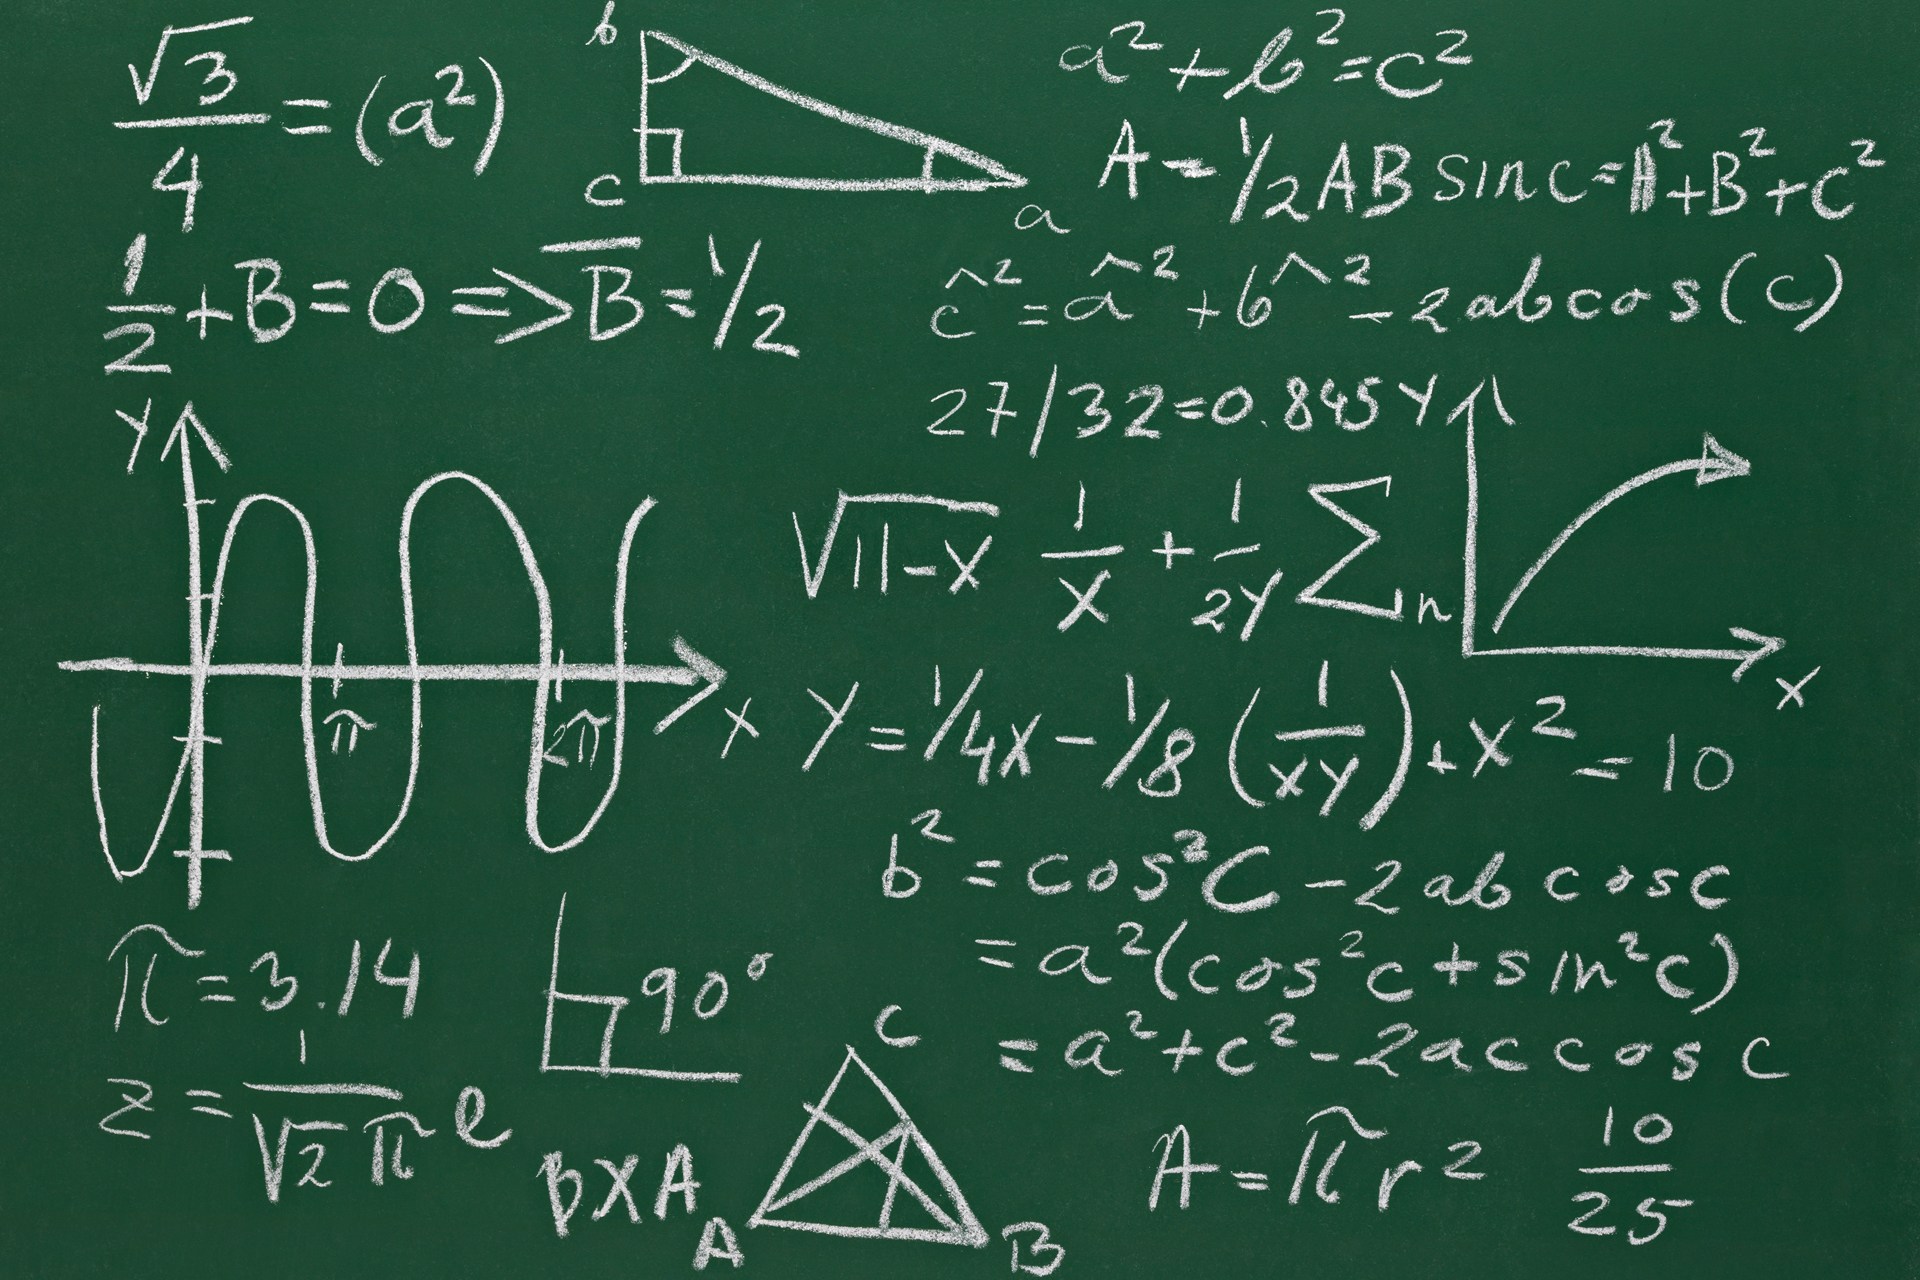 √3/4 = (a²)
b
c
a
a² + b² = c²
A = 1/2 AB sin c = A² + B² + C²
1/2 + B = 0 => B̅ = 1/2
ĉ² = â² + b^² - 2ab cos (c)
27/32 = 0.845
Y
X
π
2π
Y
X
√11-X 1/X + 1/2Y Σn
Y = 1/4X - 1/8 (1/XY) + X² = 10
b² = cos²C - 2ab cos c
= a² (cos²c + sin²c)
= a² + c² - 2ac cos c
π = 3.14
90°
z = 1/√2π e
B X A
C
A
B
A = πr²
10/25